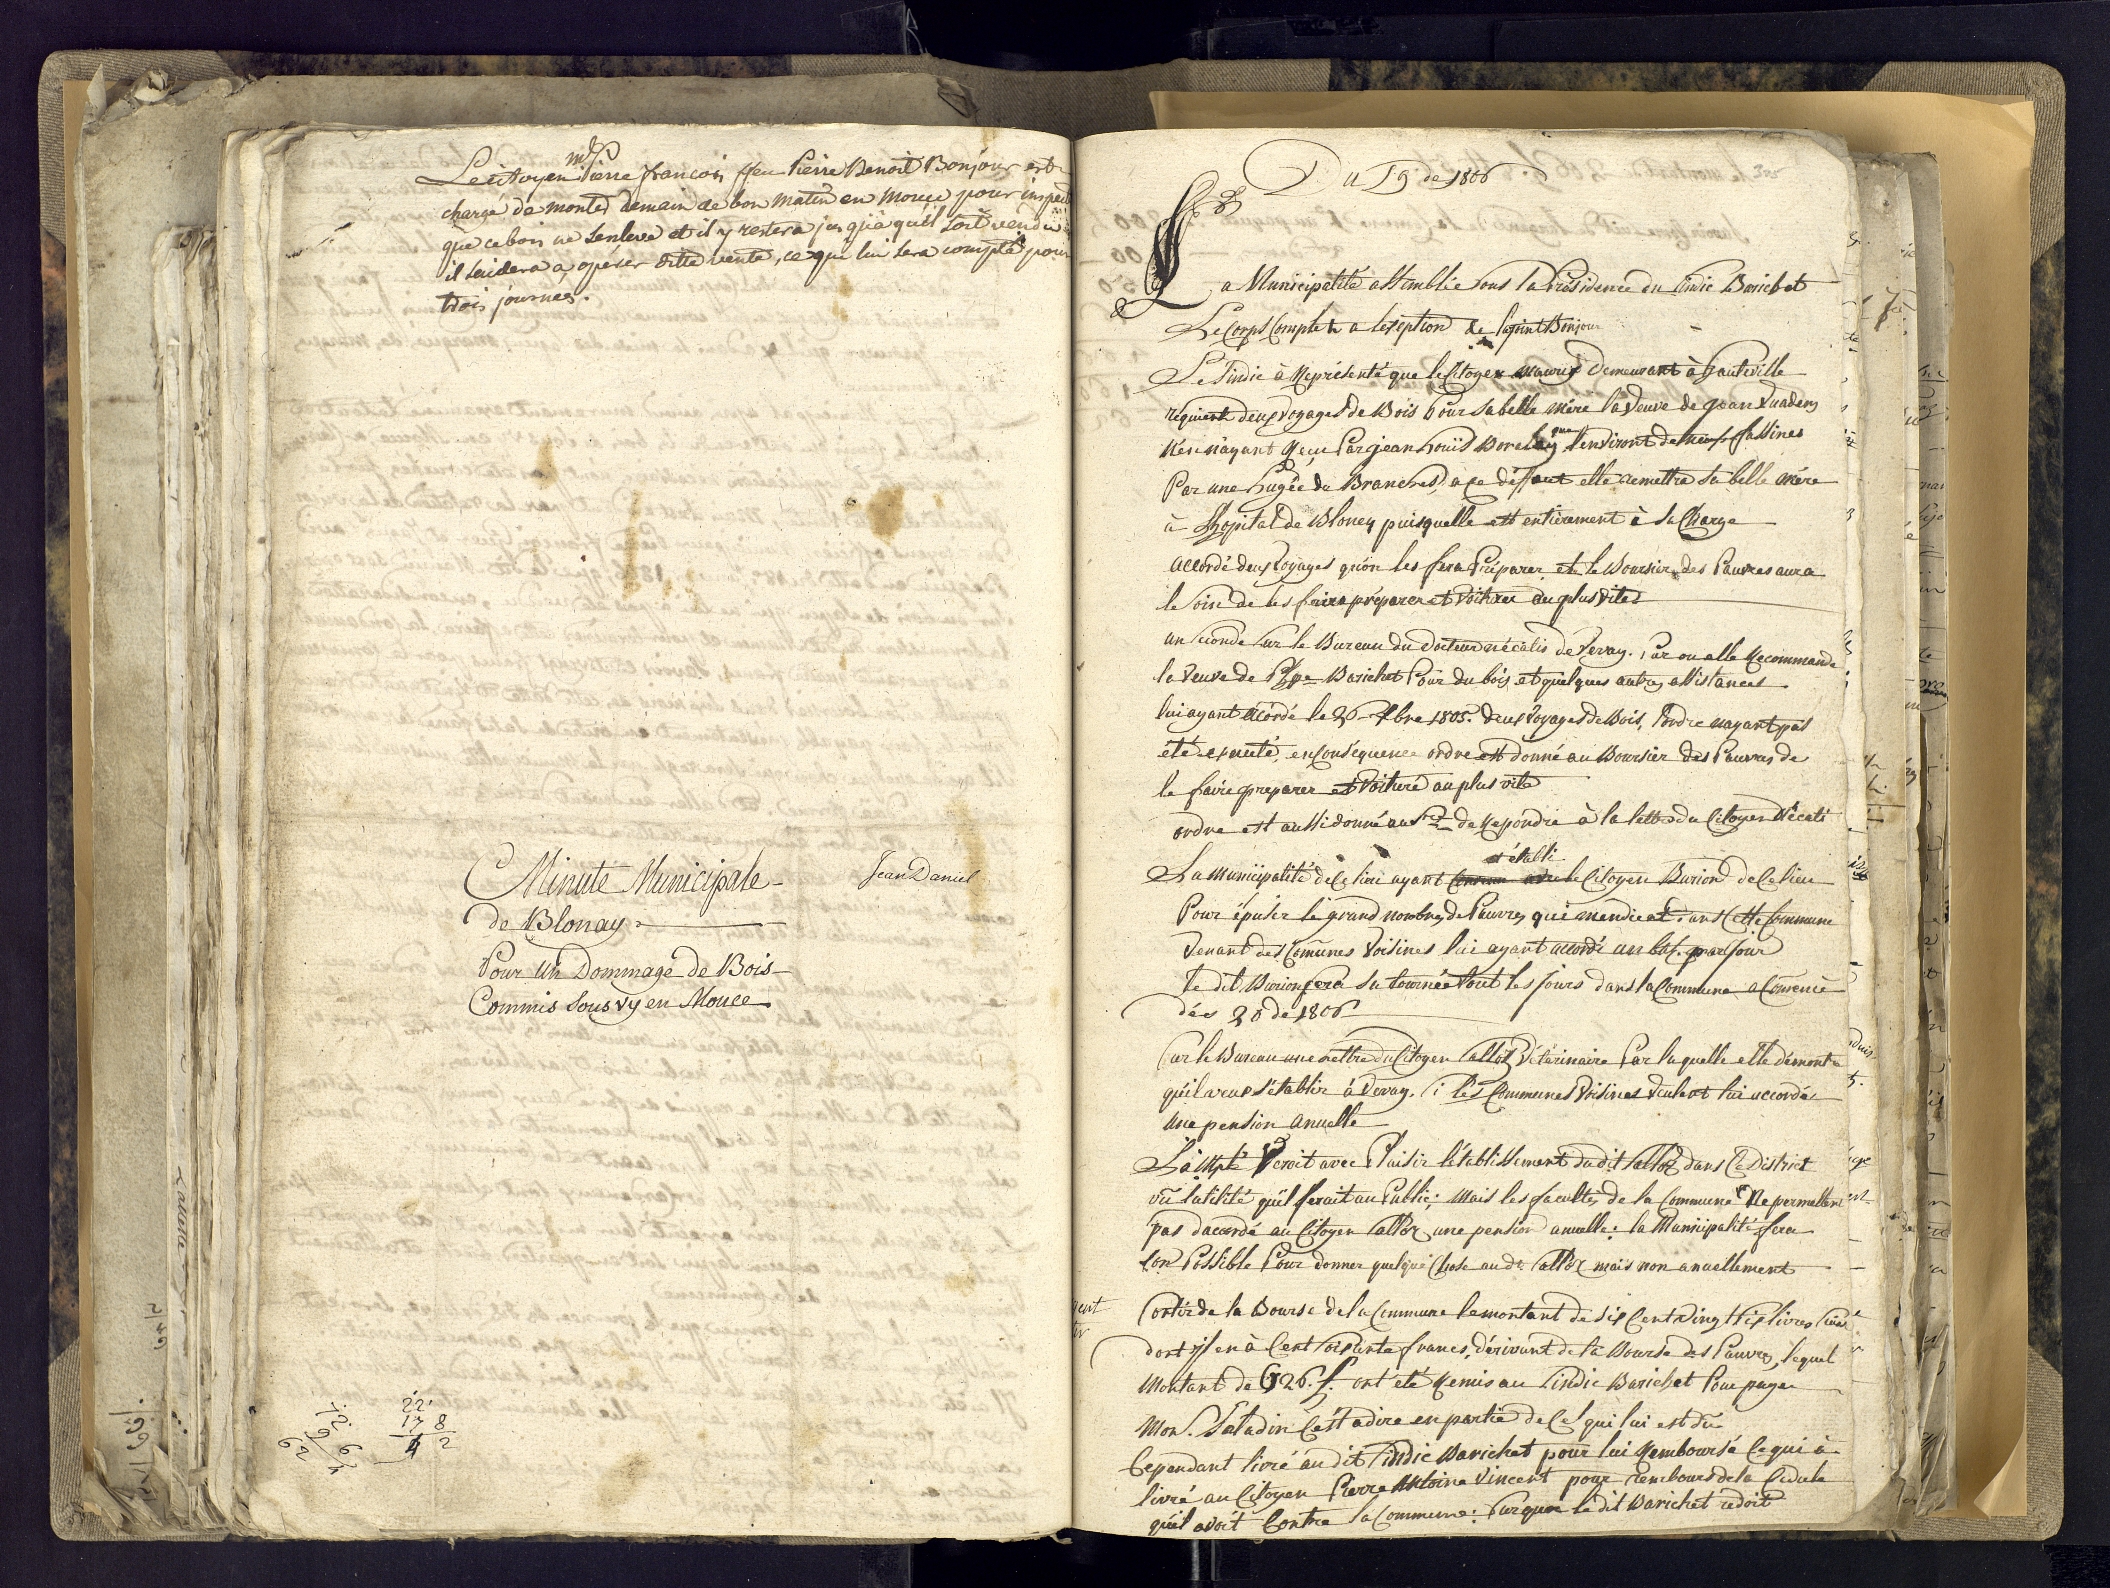 Le citoyen Pierre francois ffeu Pierre Benoit Bonjour est
chargé de monter demain de bon matin en Mouce pour inspect
que ce bois ne senleve et il y restera jusquà quil soit vendu
il saidera a opérer ditte vente, ce qui lui sera compté pour
trois journees.
Minute Municipale
de Blonay
Pour Un Dommage de Bois
Commis Sous vy en Mouce
Jean Daniel
22
17 8
4 2
Du 19 de 1806
La Municipalité assemblée sous la Présidence du sindic Barichet
Le Corps Complet a lexeption de lajoint Bonjour
Le sindic à Représenté que le Citoyen Mauris Demeurant à hauteville
requiert deux voyages de Bois pour sa belle mère la veuve de Jean
N'en n'ayant Reçu Par jean Louis que l'environt de neuf fassines
Par une de Branches, a ce déffaut elle remettra sa belle mére
à lhopital de Blonay puisquelle est entièrement à sa Charge
accordé deux voyages qu'on les fera Préparer et le Boursier des Pauvres aura
le soin de les faire préparer et voiturer au plus vite
sur le Bureau du Docteur de Vevay. Par ou elle Recommande
la veuve de Barichet Pour du bois et quelques autres assistances
lui ayant acordé le 26 Xbre 1805. deux voyages de Bois, l'ordre nayant pas
été exécuté, en Conséquence ordre est donné au Boursier des Pauvres de
le faire préparer et voituré au plus vite
ordre est aussi donné au de Repondre à la lettre du Citoyen
établi
La Municipalité de Ce lieu ayant le Citoyen Burion de Ce lieu
Pour épuiser le grand nombre de Pauvres qui mendient dans Cette Commune
Venant des Comunes Voisines lui ayant accordé un bat. par jour
le dit Burion fera sa tournée tout les jours dans la Commune a Comencé
dés 20 de 1806
Sur le Bureau une lettre du Citoyen Vétérinaire Par laquelle elle démontre
quil veut sétablir à Vevay. si les Communes Voisines veulent lui accordé
une pension anuelle
La Mplé Veroit avec Plaisir létablissement dudit dans Ce District
vu lutilité quil ferait au Public; Mais les facultés de la Commune Ne permettent
pas dacordé au Citoyen une pension anuelle: la Municipalité fera
son Possible Pour donner quelque Chose au dt mais non anuellement
Sortir de la Bourse de la Commune le montant de six Cent Vingt six livres
dont il en à Cent soixante francs, dérivant de la Bourse des Pauvres, lequel
Montant de 626. f. ont été Remis au sindic Barichet Pour payer
Mon. Saladin Cest a dire en partie de Ce qui lui est du
Cependant livré au dit sindic Barichet pour lui Remboursé Ce qui à
livré au Citoyen Pierre Antoine Vincent pour rembours de la Cedule
quil avoit Contre la Commune: Surquoi le dit Barichet redoit